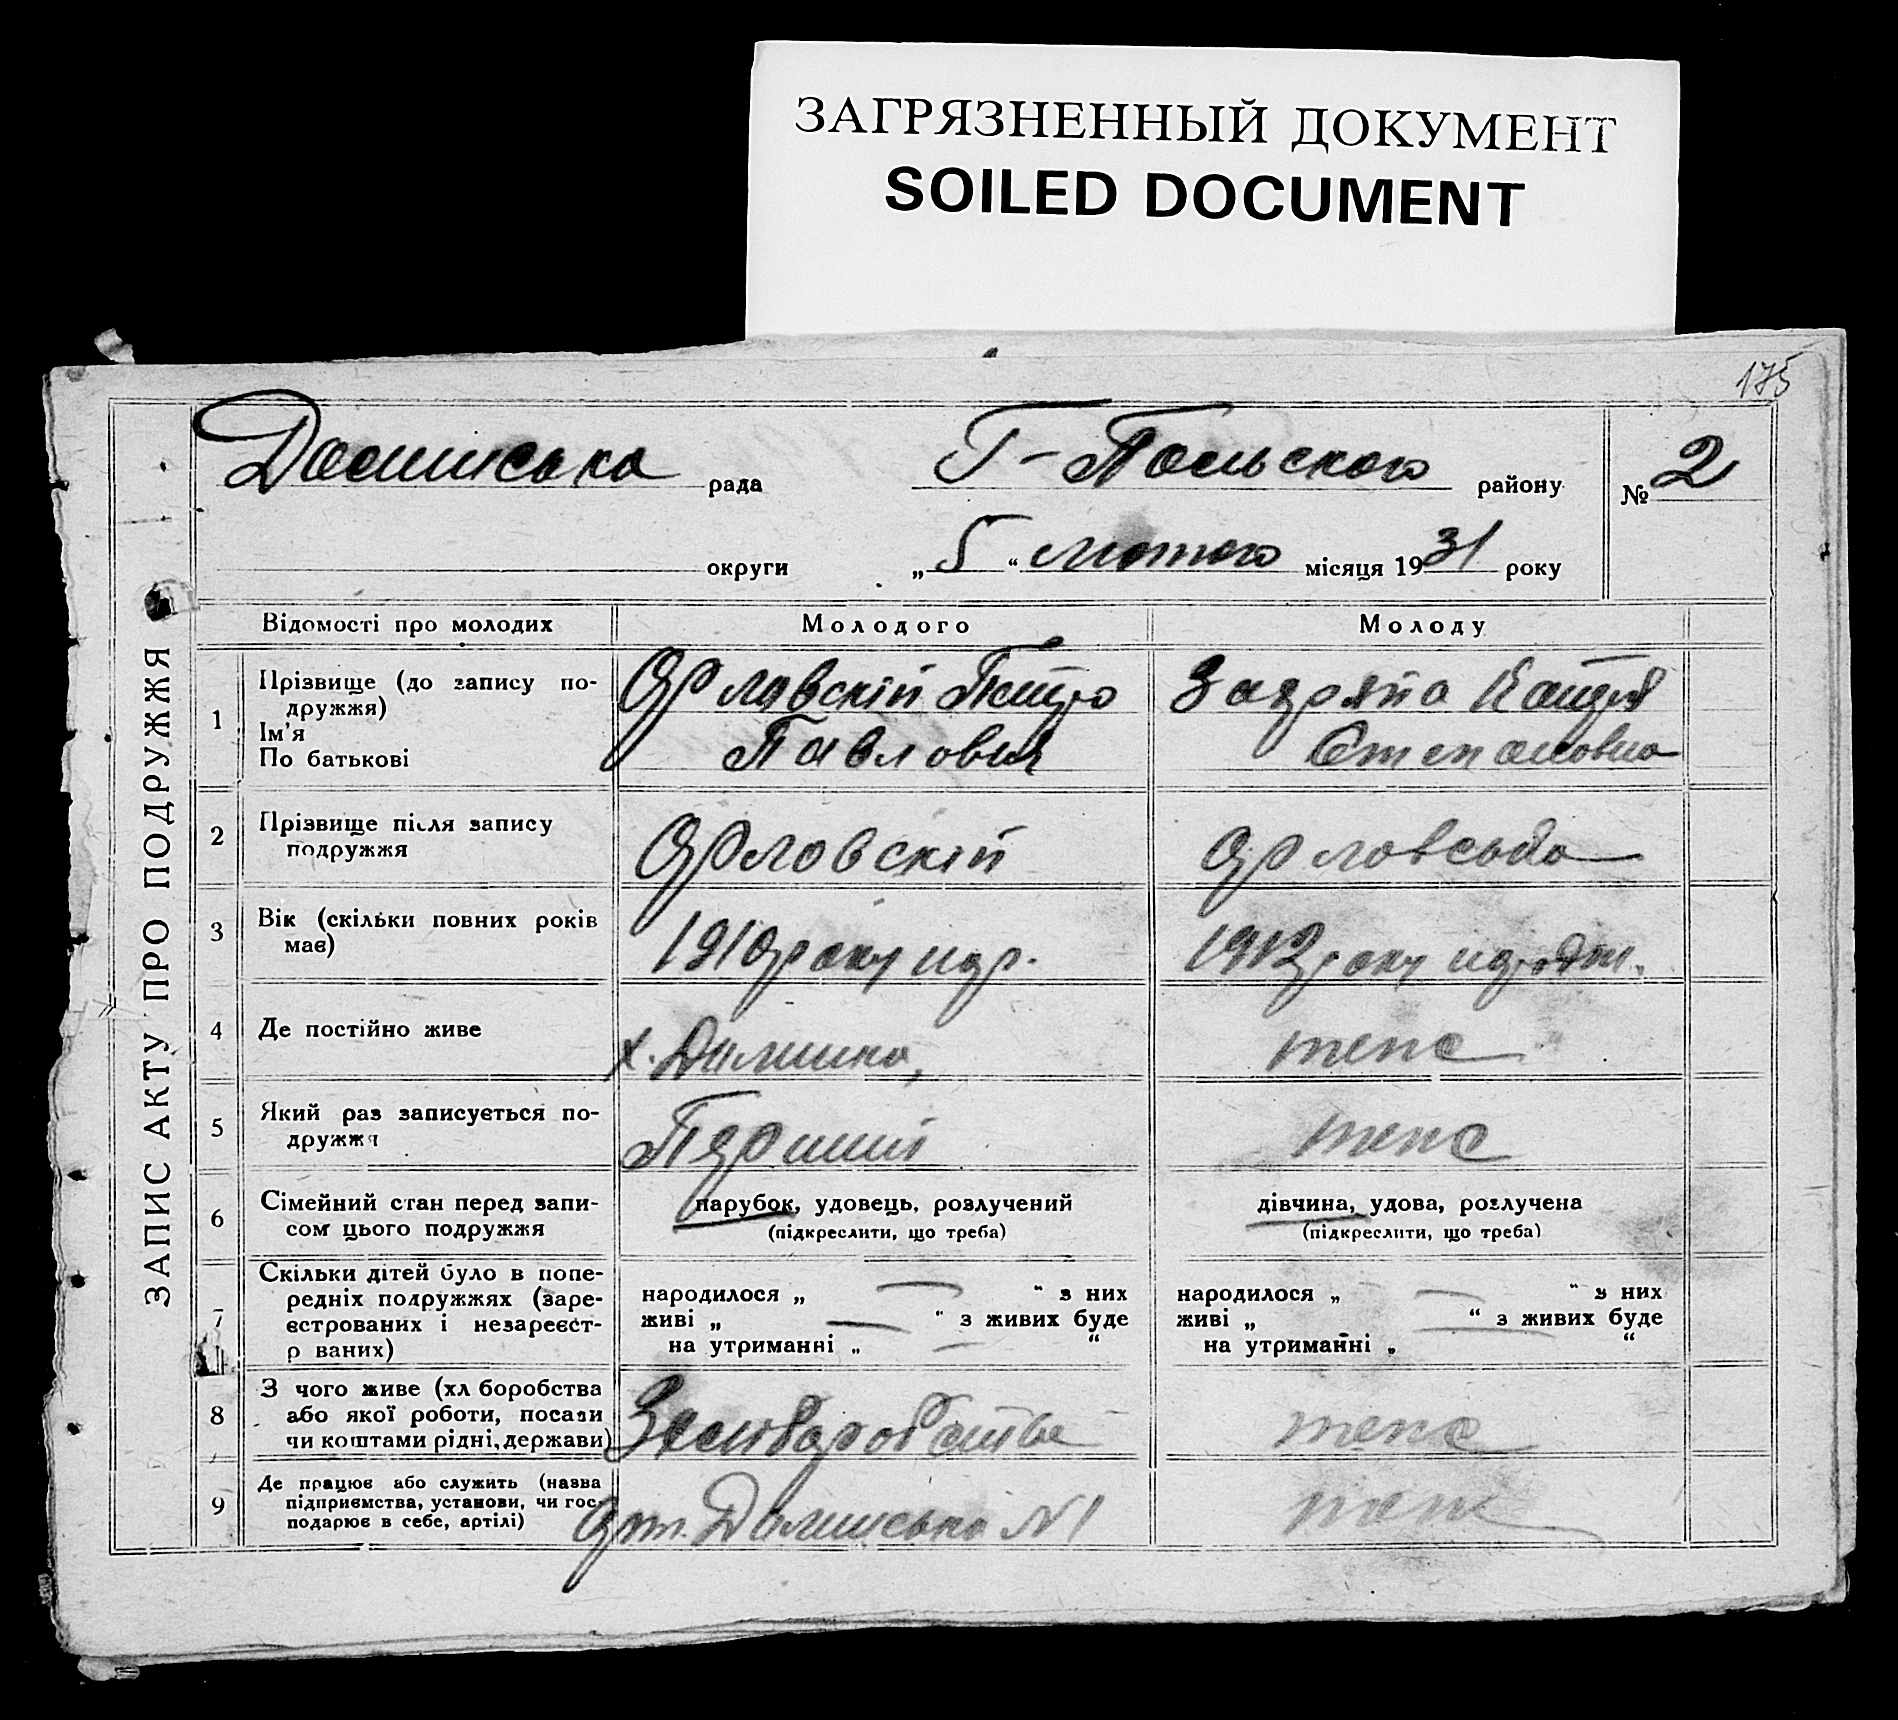 ЗАГРЯЗНЕННЫЙ ДОКУМЕНТ
SOILED DOCUMENT
175
ЗАПИС АКТУ ПРО ПОДРУЖЖЯ
Долинська рада Г-Польского району № 2
округи „5“ лютого місяця 1931 року
Відомості про молодих Молодого Молоду
1 Прізвище (до запису по-
дружжя)
Ім'я
По батькові
Орловскій Петро
Павлович
Степановна
2 Прізвище після запису
подружжя
Орловскій
Орловська
3 Вік (скільки повних років
має)
1910 року нар.
1912 року
4 Де постійно живе х. Долина, теж
5 Який раз записується по-
дружжя
Перший теж
6 Сімейний стан перед запи-
сом цього подружжя
парубок, удовець, розлучений
(підкреслити, що треба)
дівчина, удова, розлучена
(підкреслити, що треба)
7 Скільки дітей було в попе-
редніх подружжях (заре-
єстрованих і незареєст-
р ваних)
народилося „ — “ з них
живі „ — “ з живих буде
на утриманні „ — “
народилося „ — “ з них
живі „ — “ з живих буде
на утриманні „ “
8 З чого живе (хл боробства
або якої роботи, посади
чи коштами рідні, держави)
теж
9 Де працює або служить (назва
підприємства, установи, чи гос-
подарює в себе, артілі)
Долинська N1 теж